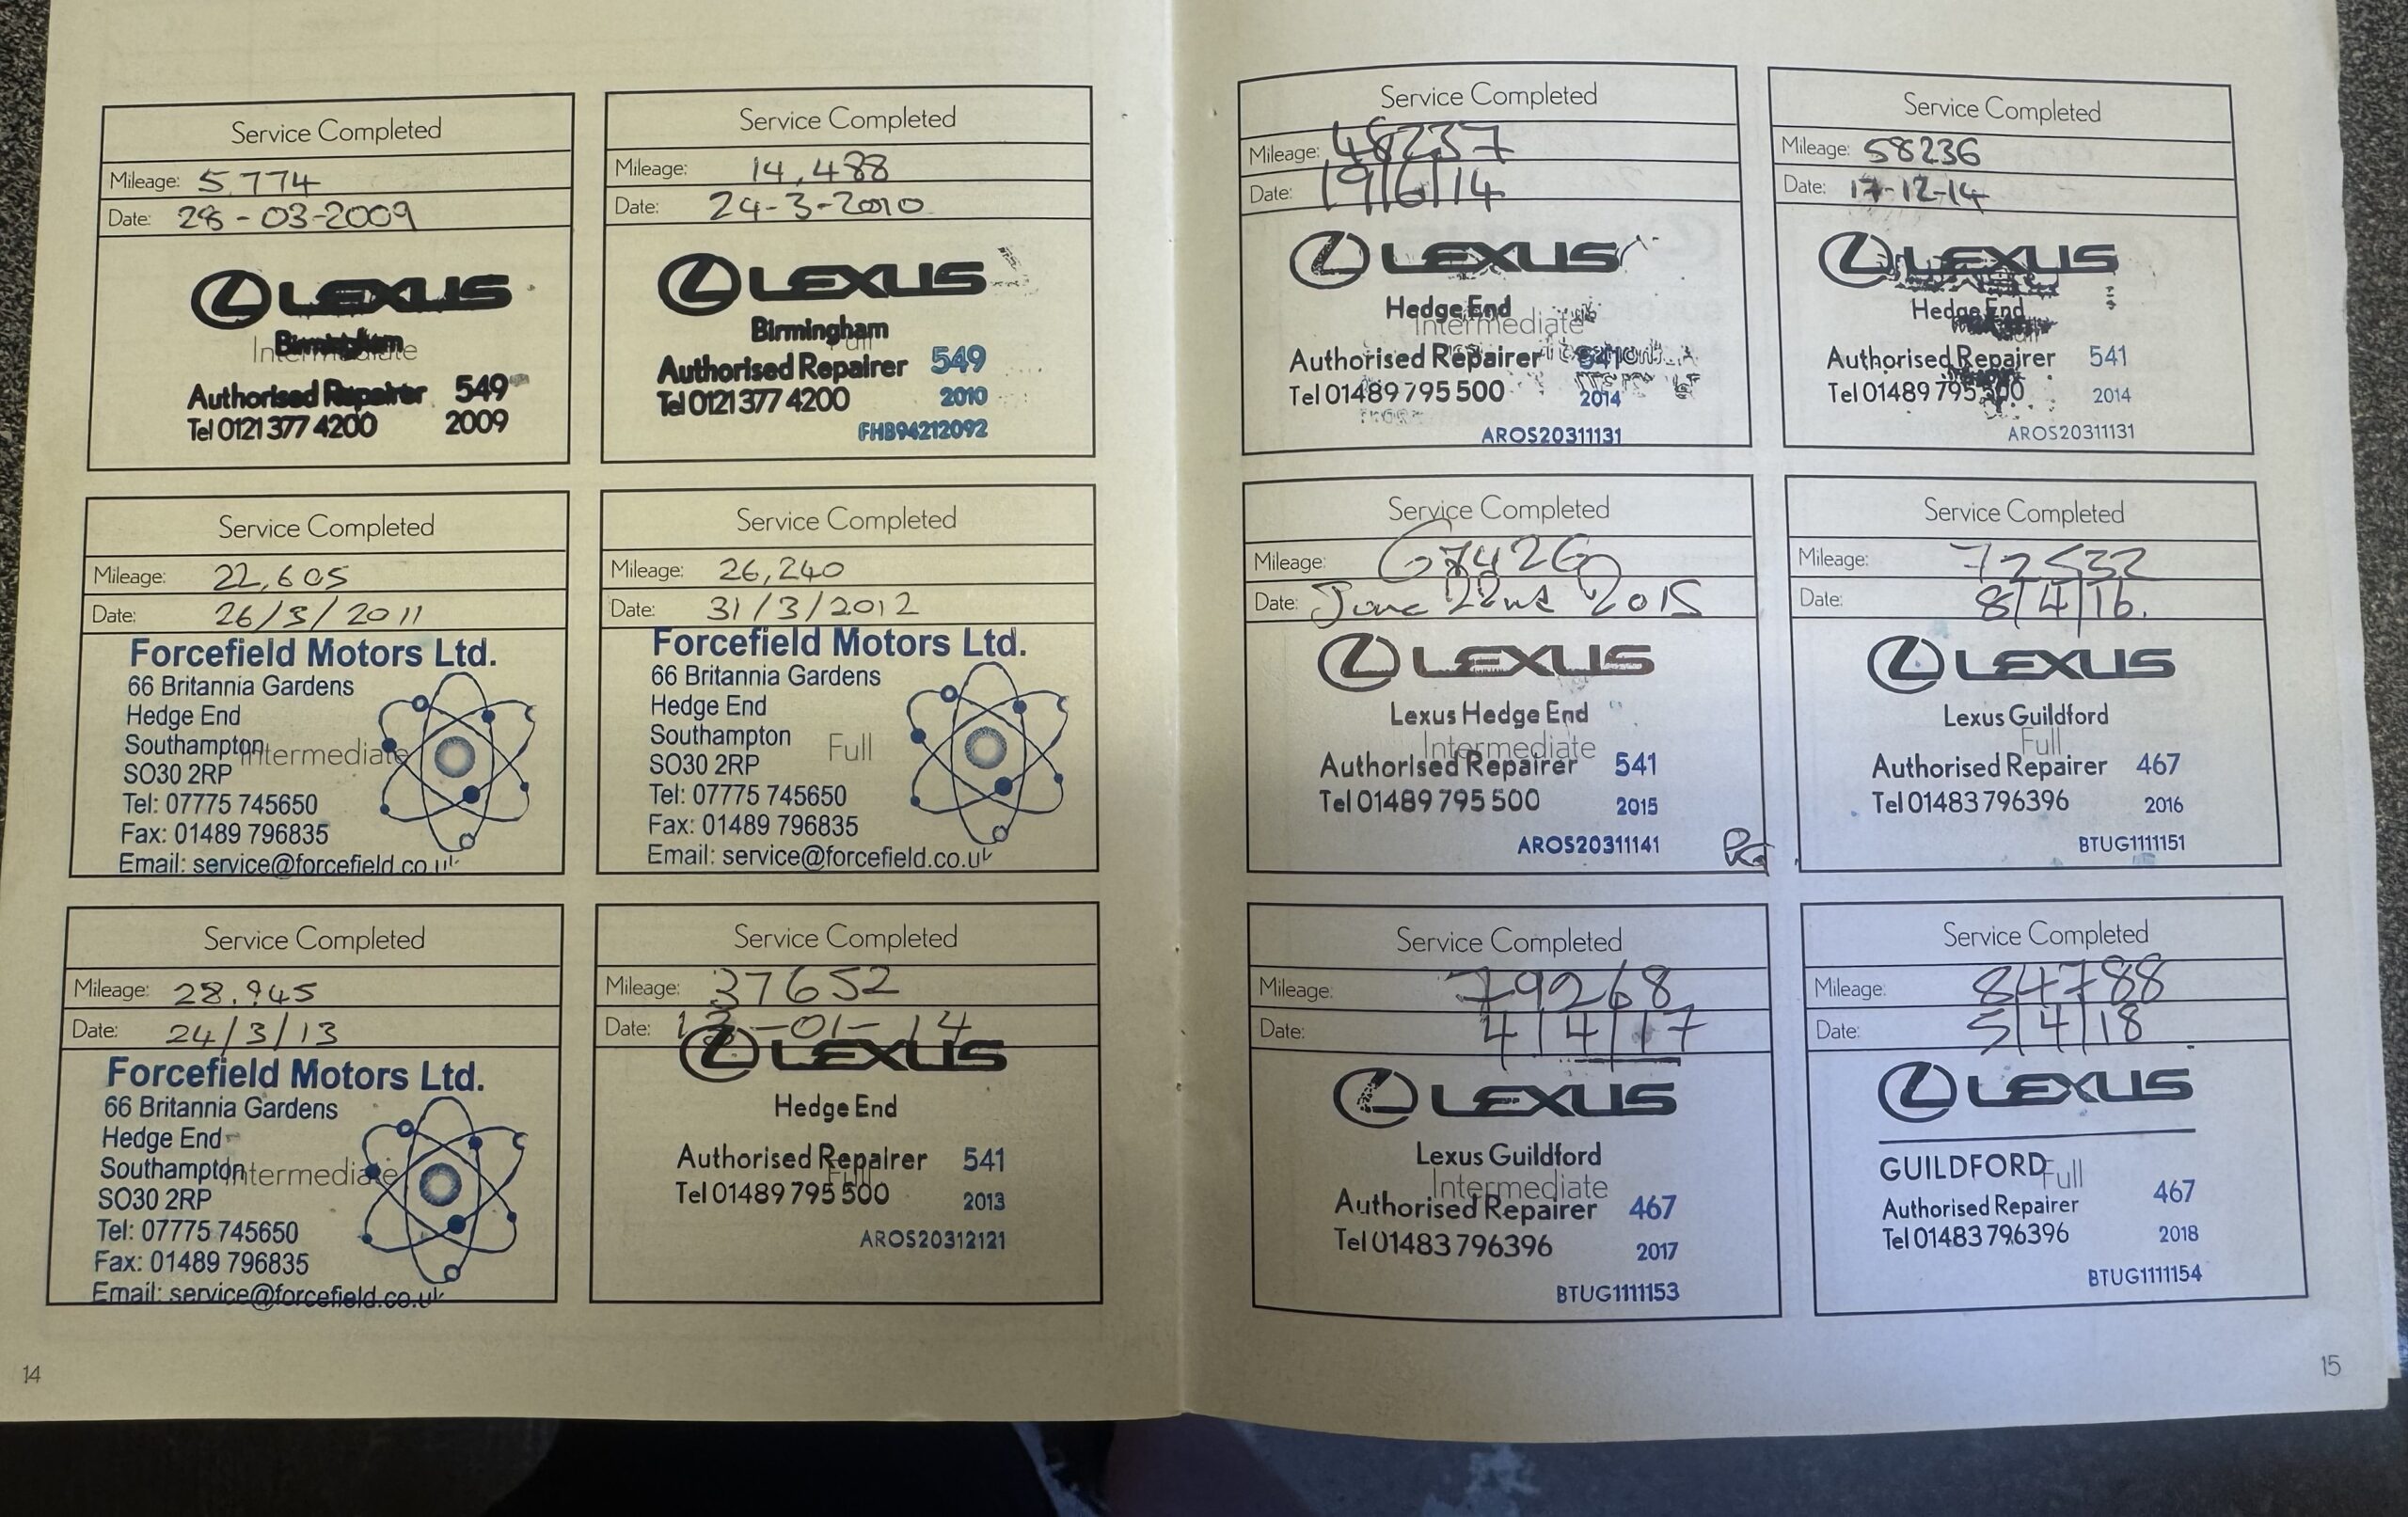 Service Completed
Mileage: 5,774
Date: 28-03-2009
LEXUS
Birmingham
Intermediate
Authorised Repairer 549
Tel 0121 377 4200 2009
Service Completed
Mileage: 14,488
Date: 24-3-2010
LEXUS
Birmingham
Full
Authorised Repairer 549
Tel 0121 377 4200 2010
FHB94212092
Service Completed
Mileage: 22,605
Date: 26/3/2011
Forcefield Motors Ltd.
66 Britannia Gardens
Hedge End
Southampton
Intermediate
SO30 2RP
Tel: 07775 745650
Fax: 01489 796835
Email: service@forcefield.co.uk
Service Completed
Mileage: 26,240
Date: 31/3/2012
Forcefield Motors Ltd.
66 Britannia Gardens
Hedge End
Southampton
Full
SO30 2RP
Tel: 07775 745650
Fax: 01489 796835
Email: service@forcefield.co.uk
Service Completed
Mileage: 28,945
Date: 24/3/13
Forcefield Motors Ltd.
66 Britannia Gardens
Hedge End
Southampton
Intermediate
SO30 2RP
Tel: 07775 745650
Fax: 01489 796835
Email: service@forcefield.co.uk
Service Completed
Mileage: 37652
Date: 13-01-14
LEXUS
Hedge End
Authorised Repairer 541
Full
Tel 01489 795 500 2013
AROS20312121
14
Service Completed
Mileage: 48237
Date: 19/6/14
LEXUS
Hedge End
Intermediate
Authorised Repairer 541
Tel 01489 795 500 2014
AROS20311131
Service Completed
Mileage: 58236
Date: 17-12-14
LEXUS
Hedge End
Full
Authorised Repairer 541
Tel 01489 795 500 2014
AROS20311131
Service Completed
Mileage: 67426
Date: June 22nd 2015
LEXUS
Lexus Hedge End
Intermediate
Authorised Repairer 541
Tel 01489 795 500 2015
AROS20311141
Service Completed
Mileage: 72532
Date: 8/4/16.
LEXUS
Lexus Guildford
Full
Authorised Repairer 467
Tel 01483 796396 2016
BTUG1111151
Service Completed
Mileage: 79268
Date: 4/4/17
LEXUS
Lexus Guildford
Intermediate
Authorised Repairer 467
Tel 01483 796396 2017
BTUG1111153
Service Completed
Mileage: 84788
Date: 5/4/18
LEXUS
GUILDFORD
Full
Authorised Repairer 467
Tel 01483 796396 2018
BTUG1111154
15